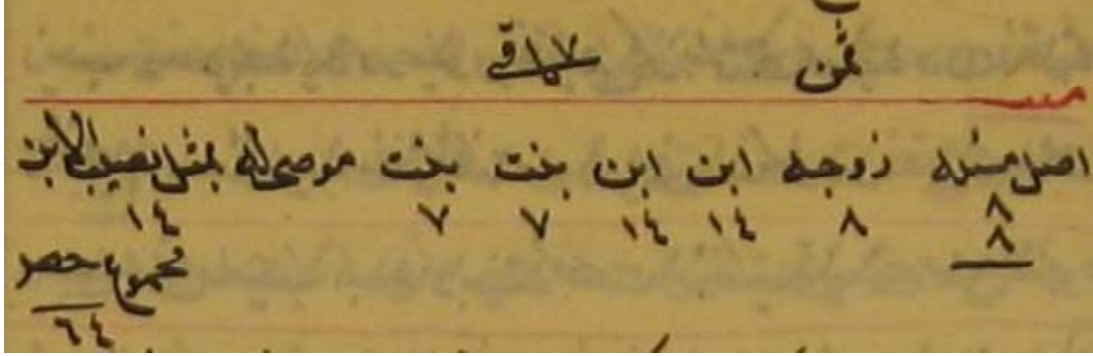 ثمن الباقي
اصل مسئله زوجه ابن ابن بنت بنت موصى له بمثل نصيب الابن
٨ ٨ ١٤ ١٤ ٧ ٧ ١٤
٨ مجموع حصص
٦٤